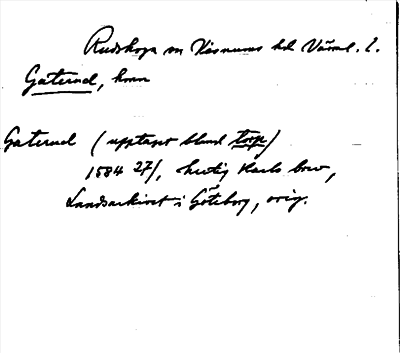 Rudskoga sn Visnums hd Värml. l.
Gaterud, hmn
Gaterud (upptaget bland torp)
1584 27/, hertig Karls brev,
Landsarkivet i Göteborg, orig.